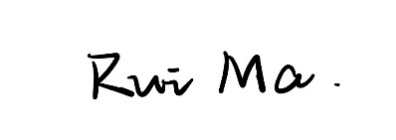 Rui Ma.